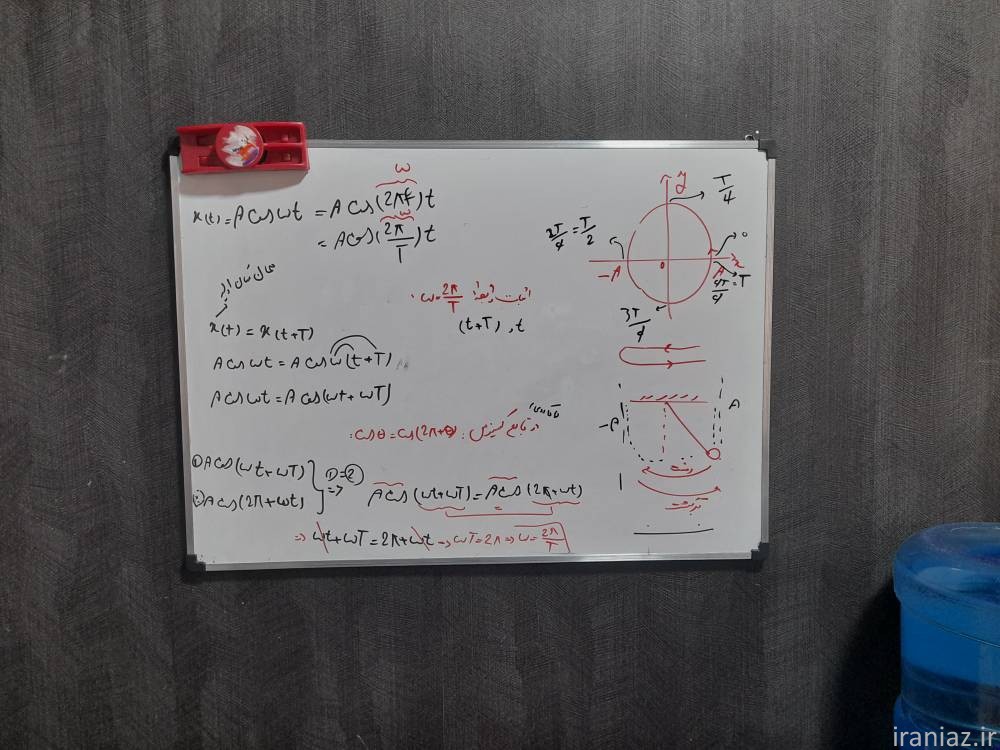 ω
x(t) = A cos ωt = A cos(2πf)t
ω
= A cos(2π/T)t
x(t) = x(t+T)
A cos ωt = A cos ω(t+T)
A cos ωt = A cos(ωt + ωT)
اثبات رابطه ω = 2π/T :
(t+T) , t
: cos θ = cos(2π+θ)
① A cos(ωt + ωT)
② A cos(2π + ωt)
① = ② ⇒
A cos (ωt+ωT) = A cos (2π+ωt)
⇒ ωt + ωT = 2π + ωt → ωT = 2π ⇒ ω = 2π/T
y
T/4
2T/4 = T/2
0
-A
0
A
x
4T/4 = T
3T/4
-A
A
رفت
برگشت
iraniaz.ir